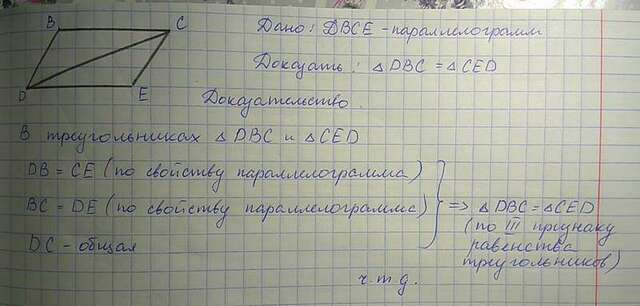 B C
Дано: DBCE - параллелограмм
Доказать: △DBC = △CED
D E
Доказательство
В треугольниках △DBC и △CED
DB = CE (по свойству параллелограмма)
BC = DE (по свойству параллелограмма)
DC - общая
=> △DBC = △CED
(по III признаку
равенства
треугольников)
ч.т.д.